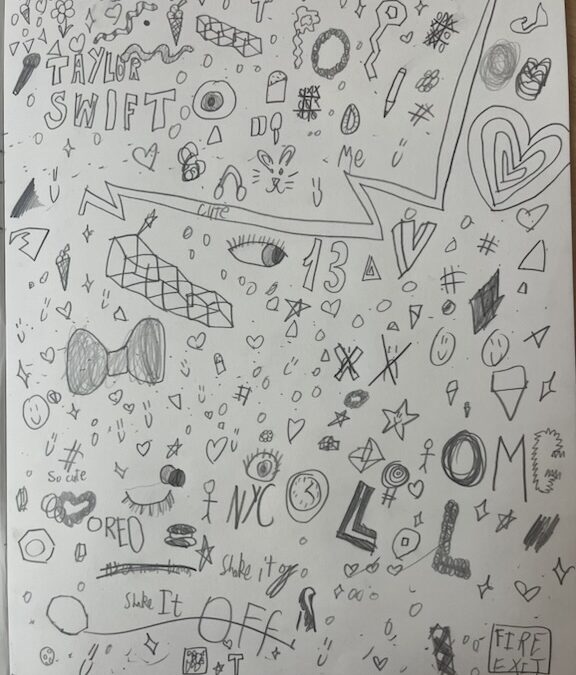 T
TAYLOR
SWIFT
Me
cute
13
So cute
OMG
NYC
LOL
RED
Shake it off
Shake It
OFF
T
FIRE
EXIT